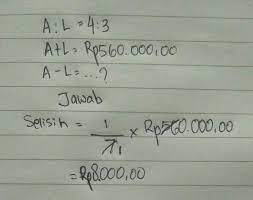 A : L = 4:3
A+L = Rp560.000,00
A - L = ...?
Jawab
Selisih = 1/7 1 x Rp560.000,00
= Rp8.000,00